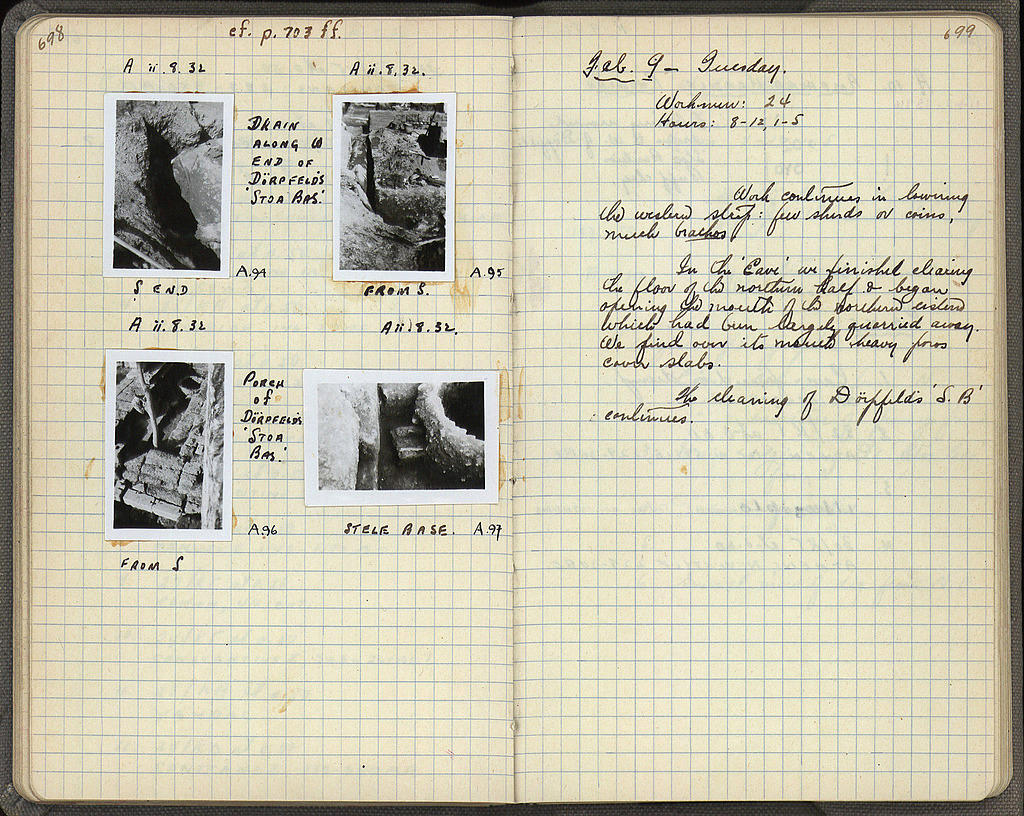 698
cf. p. 703 ff.
A ii.8.32
DRAIN
ALONG W
END OF
DÖRPFELD'S
'STOA BAS.'
A.94
S END
A ii.8.32.
A.95
FROM S.
A ii.8.32
PORCH
OF
DÖRPFELD'S
'STOA
BAS.'
A.96
FROM S
A ii.8.32.
STELE BASE. A.97
699
Feb. 9 – Tuesday.
Workmen: 24
Hours: 8-12, 1-5
Work continues in lowering
the western strip: few sherds or coins,
much
In the 'Cave' we finished clearing
the floor of the northern half & began
opening the mouth of the northern cistern
which had been largely quarried away.
We find over its mouth heavy poros
cover slabs.
The clearing of Dörpfeld's 'S.B'
continues.